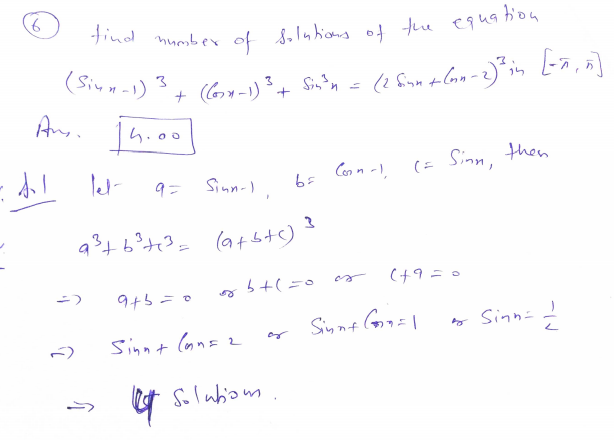 ⑥ find number of solutions of the equation
(Sinx-1)³ + (Cosx-1)³ + Sin³x = (2 Sinx + Cosx - 2)³ in [-π, π]
Ans. 4.00
Sol let a = Sinx-1, b = Cosx-1, c = Sinx, then
a³+b³+c³ = (a+b+c)³
=> a+b=0 or b+c=0 or c+a=0
=> Sinx + Cosx = 2 or Sinx + Cosx = 1 or Sinx = 1/2
=> 4 Solutions.